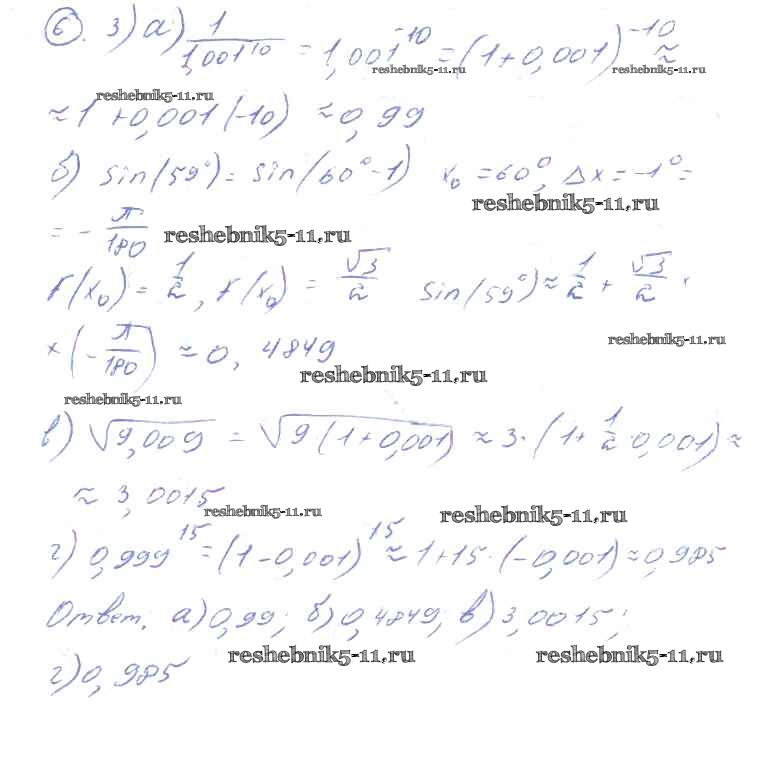 6. 3) а) 1/1,001^10 = 1,001^-10 = (1+0,001)^-10 ≈
reshebnik5-11.ru reshebnik5-11.ru
reshebnik5-11.ru
≈ 1 + 0,001 (-10) ≈ 0,99
б) sin(59°) = sin(60°-1) x₀ = 60°, Δx = -1° =
reshebnik5-11.ru
= - π/180 reshebnik5-11.ru
f(x₀) = 1/2, f(x₀) = √3/2 sin(59°) ≈ 1/2 + √3/2 ×
reshebnik5-11.ru
× (- π/180) ≈ 0,4849
reshebnik5-11.ru
reshebnik5-11.ru
в) √9,009 = √9·(1+0,001) ≈ 3·(1+ 1/2 ·0,001) ≈
≈ 3,0015
reshebnik5-11.ru reshebnik5-11.ru
г) 0,999^15 = (1-0,001)^15 ≈ 1+15·(-0,001) ≈ 0,985
Ответ. а) 0,99; б) 0,4849; в) 3,0015;
reshebnik5-11.ru reshebnik5-11.ru
г) 0,985